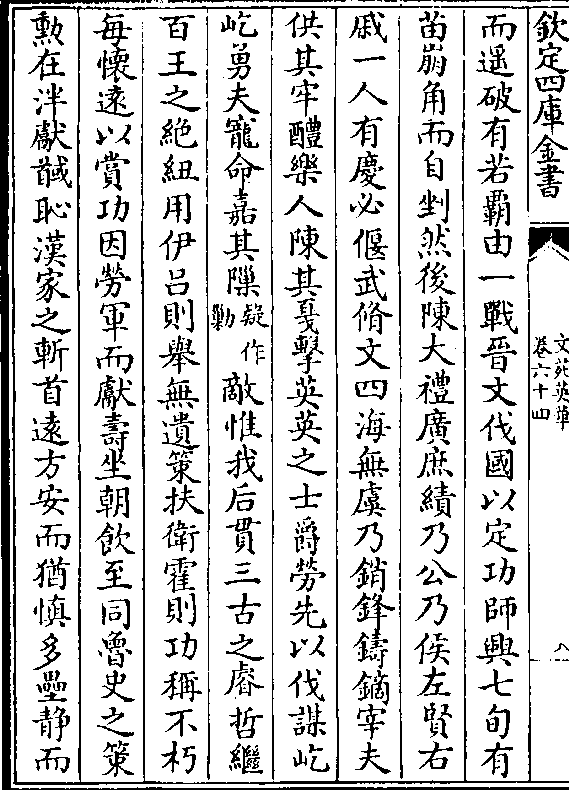 欽定四庫全書
文苑英華
卷六十四
八
而遥破有若霸由一戰晋文伐國以定功師興七旬有
苗崩角而自剉然後陳大禮廣庶績乃公乃侯左賢右
戚一人有慶必偃武脩文四海無虞乃銷鋒鑄鏑宰夫
供其牢醴樂人陳其戛擊英英之士爵勞先以伐謀屹
屹勇夫寵命嘉其隟疑作勦敵惟我后貫三古之睿哲繼
百王之絶紐用伊吕則舉無遺策扶衛霍則功稱不朽
每懷遠以賞功因勞軍而獻壽坐朝飲至同魯史之策
勲在泮獻馘恥漢家之斬首遠方安而猶慎多壘静而